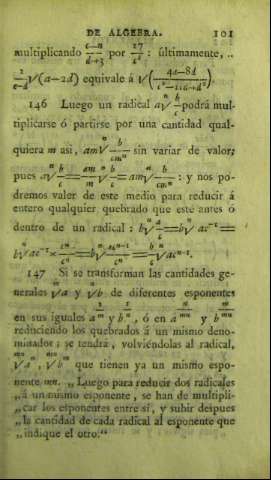 DE ALGEBRA. 101
multiplicando c—n/d+3 por 17/c² : últimamente, ..
2/c-d √(a—2d) equivale á √(4a—8d/c²—2cd+d²).
146 Luego un radical a√b/c podrá mul-
tiplicarse ó partirse por una cantidad qual-
quiera m asi, am√b/cmⁿ sin variar de valor;
pues a√b/c = am/m √b/c = am√b/cmⁿ : y nos po-
dremos valer de este medio para reducir á
entero qualquier quebrado que esté antes ó
dentro de un radical : b√a/c = b√ac⁻¹ =
b√ac⁻¹ × cⁿ/cⁿ = b√acⁿ⁻¹/cⁿ = b/c √acⁿ⁻¹.
147 Si se transforman las cantidades ge-
nerales √a y √b de diferentes esponentes
en sus iguales a y b , ó en a y b
reduciendo los quebrados á un mismo deno-
minador ; se tendrá , volviéndolas al radical,
√a , √b que tienen ya un mismo espo-
nente mn. „ Luego para reducir dos radicales
„ á un mismo esponente , se han de multipli-
„ car los esponentes entre sí, y subir despues
„ la cantidad de cada radical al esponente que
„ indique el otro.“